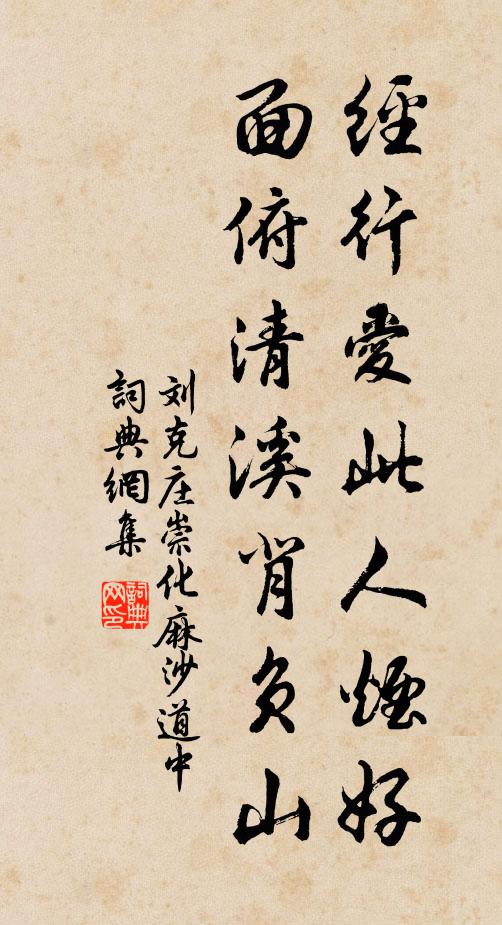 經行愛此人煙好
面俯清溪背負山
刘克庄崇化麻沙道中
詞典網集
詞典网印